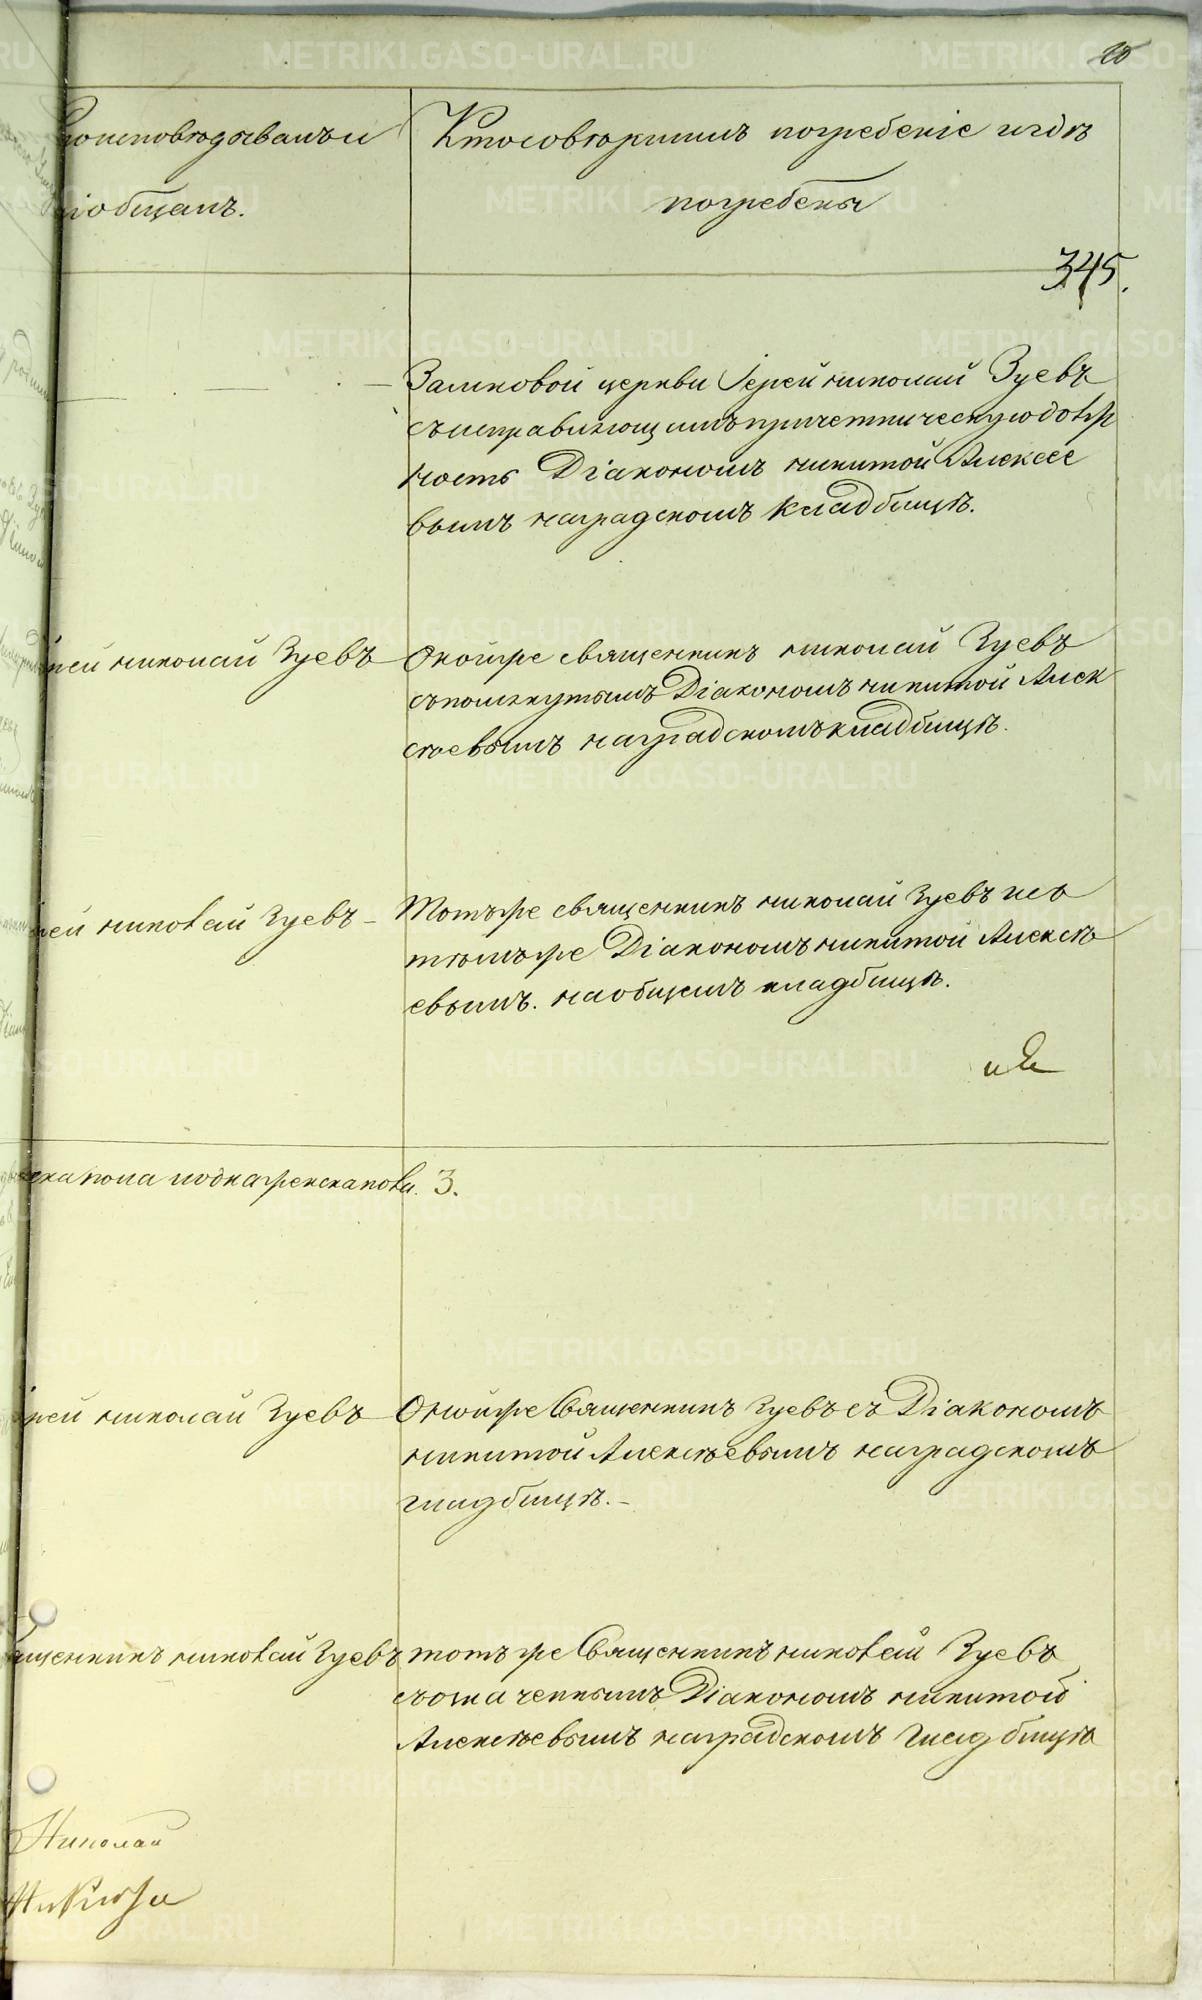 исповѣдывалъ и
Кто совѣршилъ погребеніе и гдѣ
общалъ.
погребены
345.
Замковой церкви Іерей николай Зуевъ
съ исправляющимъ причетническую долж
ность Діакономъ никитой Алексее
вымъ на градскомъ кладбищѣ.
рей николай Зуевъ
Онойже священникъ николай Зуевъ
съ помянутымъ Діакономъ никитой Алек
сѣевымъ на градскомъ кладбищѣ.
рей николай Зуевъ
Тотъ же священникъ николай Зуевъ и съ
тѣмъ же Діакономъ никитой Алексѣ
евымъ. на общемъ кладбищѣ.
пола 3.
рей николай Зуевъ
Онойже Священникъ Зуевъ съ Діакономъ
никитой Алексѣевымъ на градскомъ
гладбищѣ.
ященникъ николай Зуевъ
тотъ же Священникъ николай Зуевъ
съ означеннымъ Діакономъ никитой
Алексѣевымъ на градскомъ гладбищѣ
Николай
Никита
METRIKI.GASO-URAL.RU